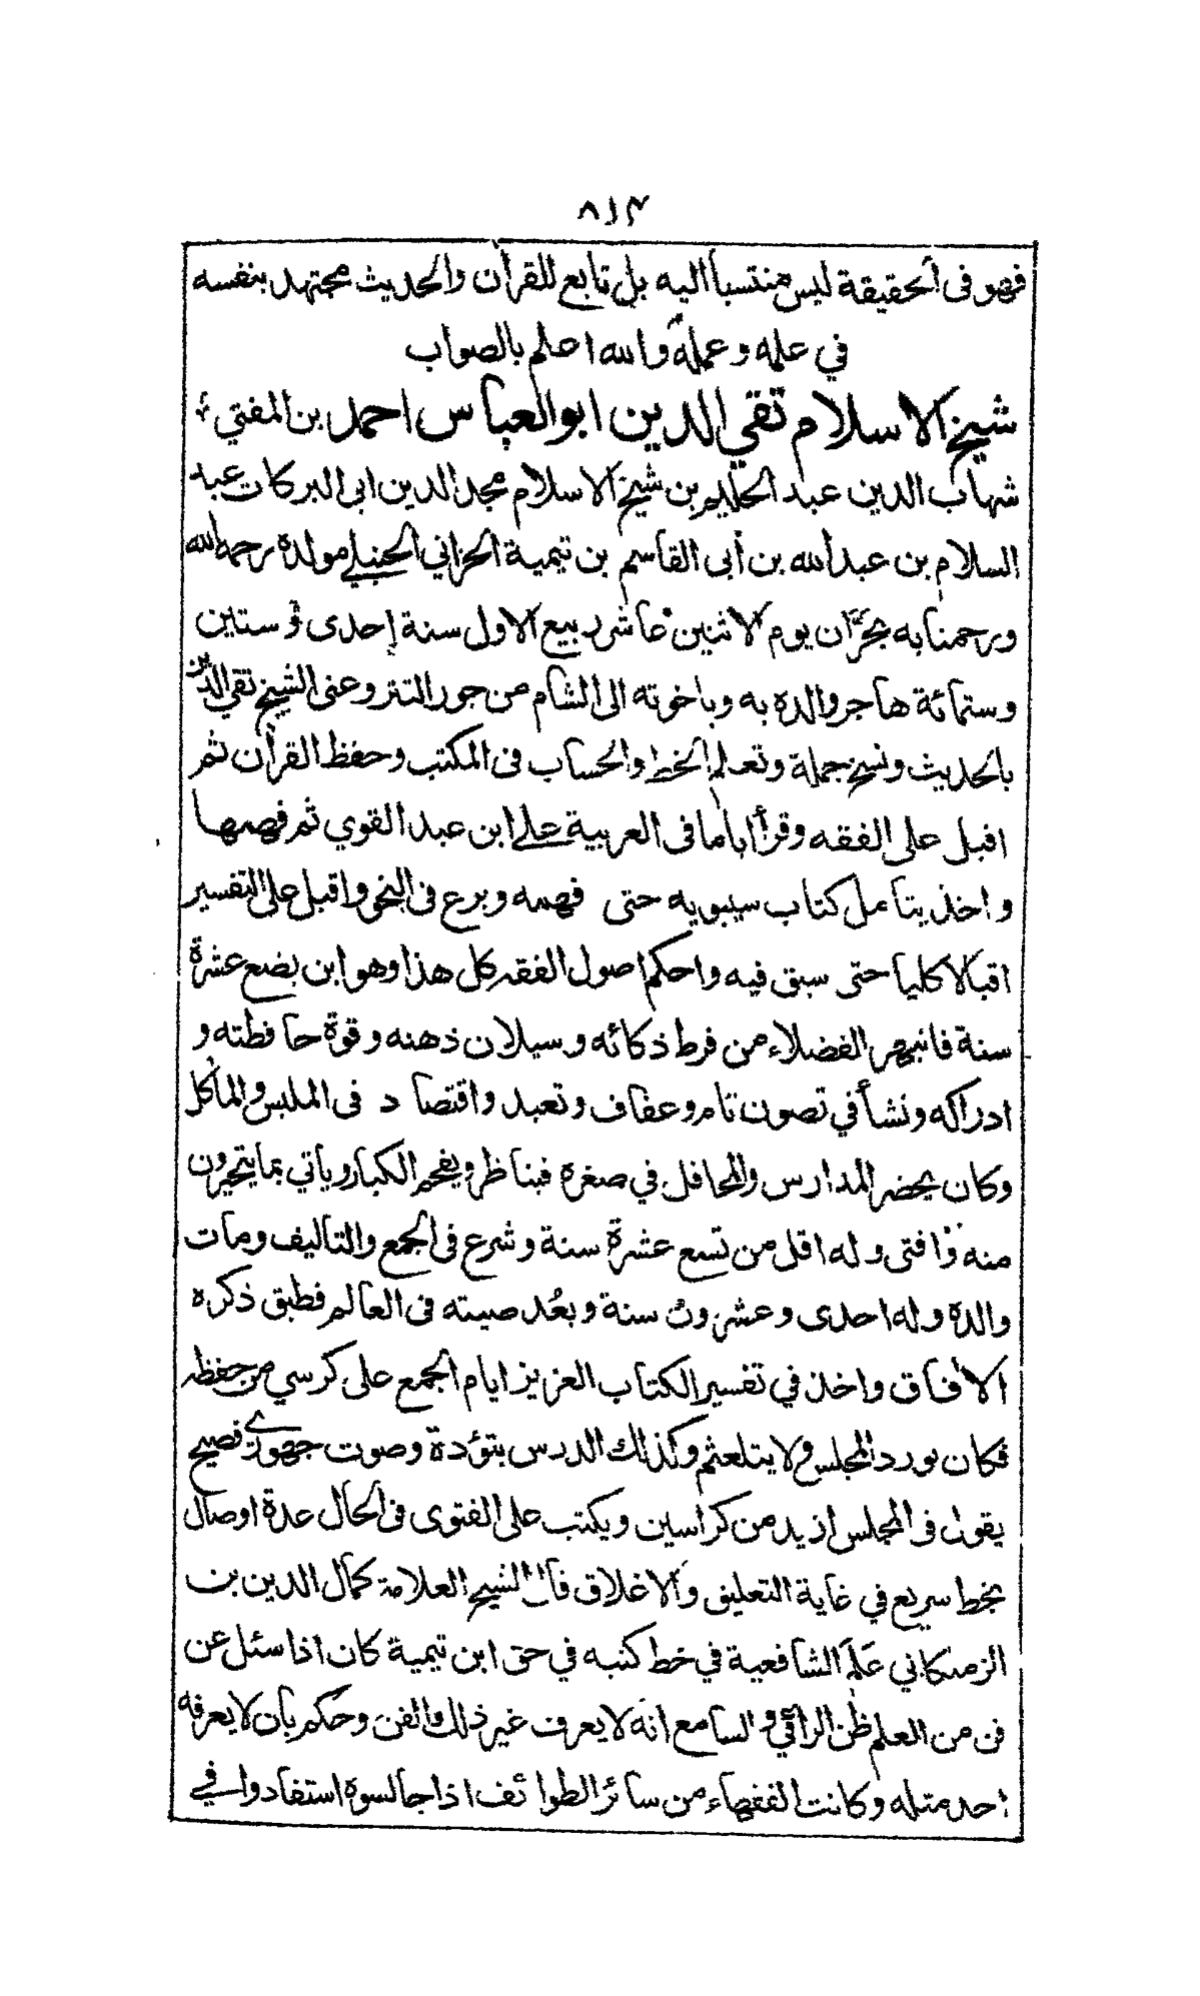 ٨١٣
فهو فى الحقيقة ليس منتسبا اليه بل تابع للقرآن والحديث مجتهد بنفسه
في علمه وعمله والله اعلم بالصواب
شيخ الاسلام تقي الدين ابو العباس احمد بن المفتي
شهاب الدين عبد الحليم بن شيخ الاسلام مجد الدين ابى البركات عبد
السلام بن عبد الله بن أبى القاسم بن تيمية الحراني الحنبلي مولده رحمه الله
ورحمنا به بحرّان يوم الاثنين عاشر ربيع الاول سنة إحدى وستين
وستمائة هاجر والده به وباخوته الى الشام من جور التتر وعنى الشيخ تقي الدين
بالحديث ونسخ جملة وتعلم الخط والحساب فى المكتب وحفظ القرآن ثم
اقبل على الفقه وقرأ اياما فى العربية على ابن عبد القوي ثم فهمها
واخذ يتأمل كتاب سيبويه حتى فهمه وبرع فى النحو واقبل على التفسير
اقبالا كليا حتى سبق فيه واحكم اصول الفقه كل هذا وهو ابن بضع عشرة
سنة فانبهر الفضلاء من فرط ذكائه وسيلان ذهنه وقوة حافظته و
ادراكه ونشأ في تصون تام وعفاف وتعبد واقتصاد فى الملبس والمأكل
وكان يحضر المدارس والمحافل في صغره فيناظر ويفحم الكبار ويأتي بما يتحيرون
منه وافتى وله اقل من تسع عشرة سنة وشرع فى الجمع والتاليف ومات
والده وله احدى وعشرون سنة وبعُد صيته فى العالم فطبق ذكره
الآفاق واخذ في تفسير الكتاب العزيز ايام الجمع على كرسي من حفظه
فكان يورد المجلس ولا يتلعثم وكذلك الدرس بتؤدة وصوت جهوري فصيح
يقول فى المجلس ازيد من كراسين ويكتب على الفتوى فى الحال عدة اوصال
بخط سريع في غاية التعليق والاغلاق قال الشيخ العلامة كمال الدين بن
الزملكاني عَلَم الشافعية في خط كتبه في حق ابن تيمية كان اذا سئل عن
فن من العلم ظن الرائي والسامع انه لا يعرف غير ذلك الفن وحكم بأن لا يعرفه
احد مثله وكانت الفقهاء من سائر الطوائف اذا جالسوه استفادوا في